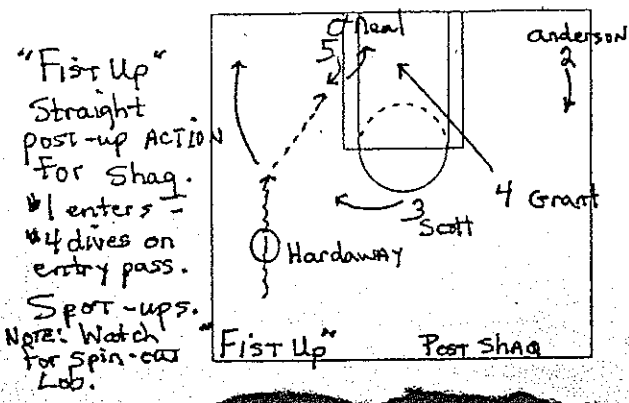 "Fist Up"
Straight
post-up ACTION
for Shaq.
#1 enters -
#4 dives on
entry pass.
Spot-ups.
NOTE: Watch
for spin-out
Lob.
O'Neal
5
anderson
2
4 Grant
3
Scott
1 Hardaway
"Fist Up"
Post Shaq